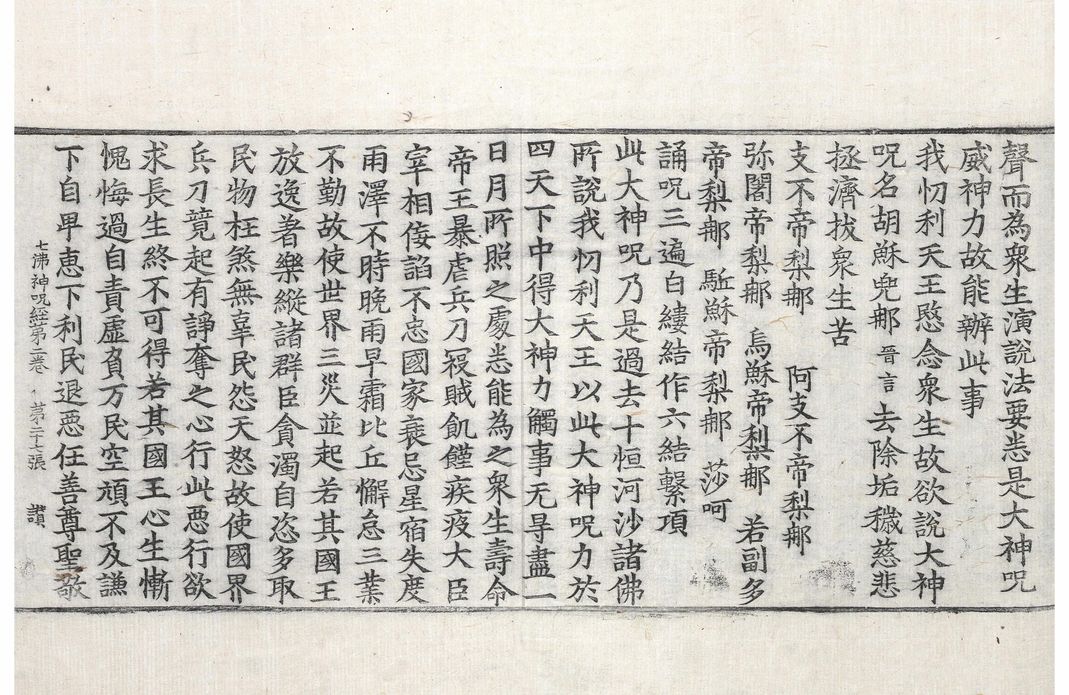 聲而為衆生演說法要悉是大神呪
威神力故能辦此事
我忉利天王愍念衆生故欲說大神
呪名胡穌兜那 晉言 去除垢穢慈悲
拯濟拔衆生苦
支不帝梨那 阿支不帝梨那
弥闍帝梨那 烏穌帝梨那 若副多
帝梨那 䮈穌帝梨那 莎呵
誦呪三遍白縷結作六結繫項
此大神呪乃是過去十恒河沙諸佛
所說我忉利天王以此大神呪力於
四天下中得大神力觸事无㝵盡一
日月所照之處悉能為之衆生壽命
帝王暴虐兵刀𥨊賊飢饉疾疫大臣
宰相侫諂不忠國家衰忌星宿失度
雨澤不時晚雨早霜比丘懈怠三業
不勤故使世界三災並起若其國王
放逸著樂縱諸群臣貪濁自恣多取
民物枉煞無辜民怨天怒故使國界
兵刀競起有諍奪之心行此惡行欲
求長生終不可得若其國王心生慚
愧悔過自責虛貧万民空頑不及謙
七佛神呪経第二卷 第二十七張 讚
下自卑恵下利民退惡任善尊聖敬